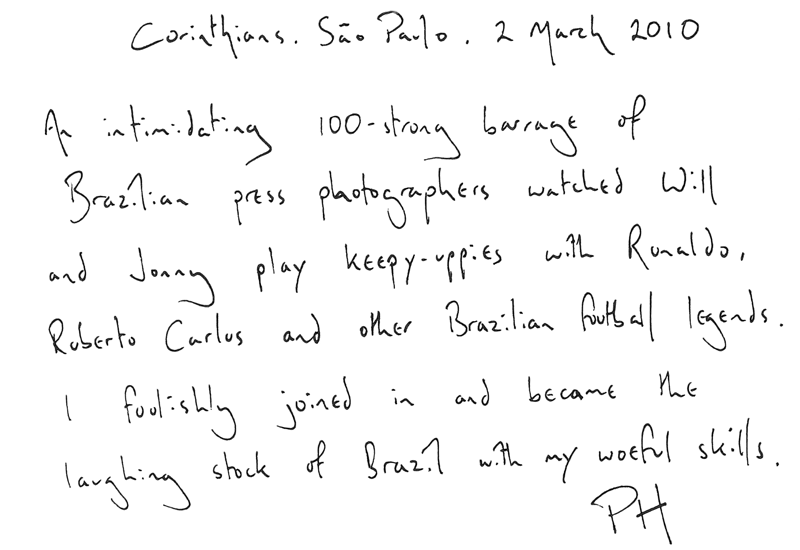 Corinthians. São Paulo. 2 March 2010
An intimidating 100-strong barrage of
Brazilian press photographers watched Will
and Jonny play keepy-uppies with Ronaldo,
Roberto Carlos and other Brazilian football legends.
I foolishly joined in and became the
laughing stock of Brazil with my woeful skills.
PH